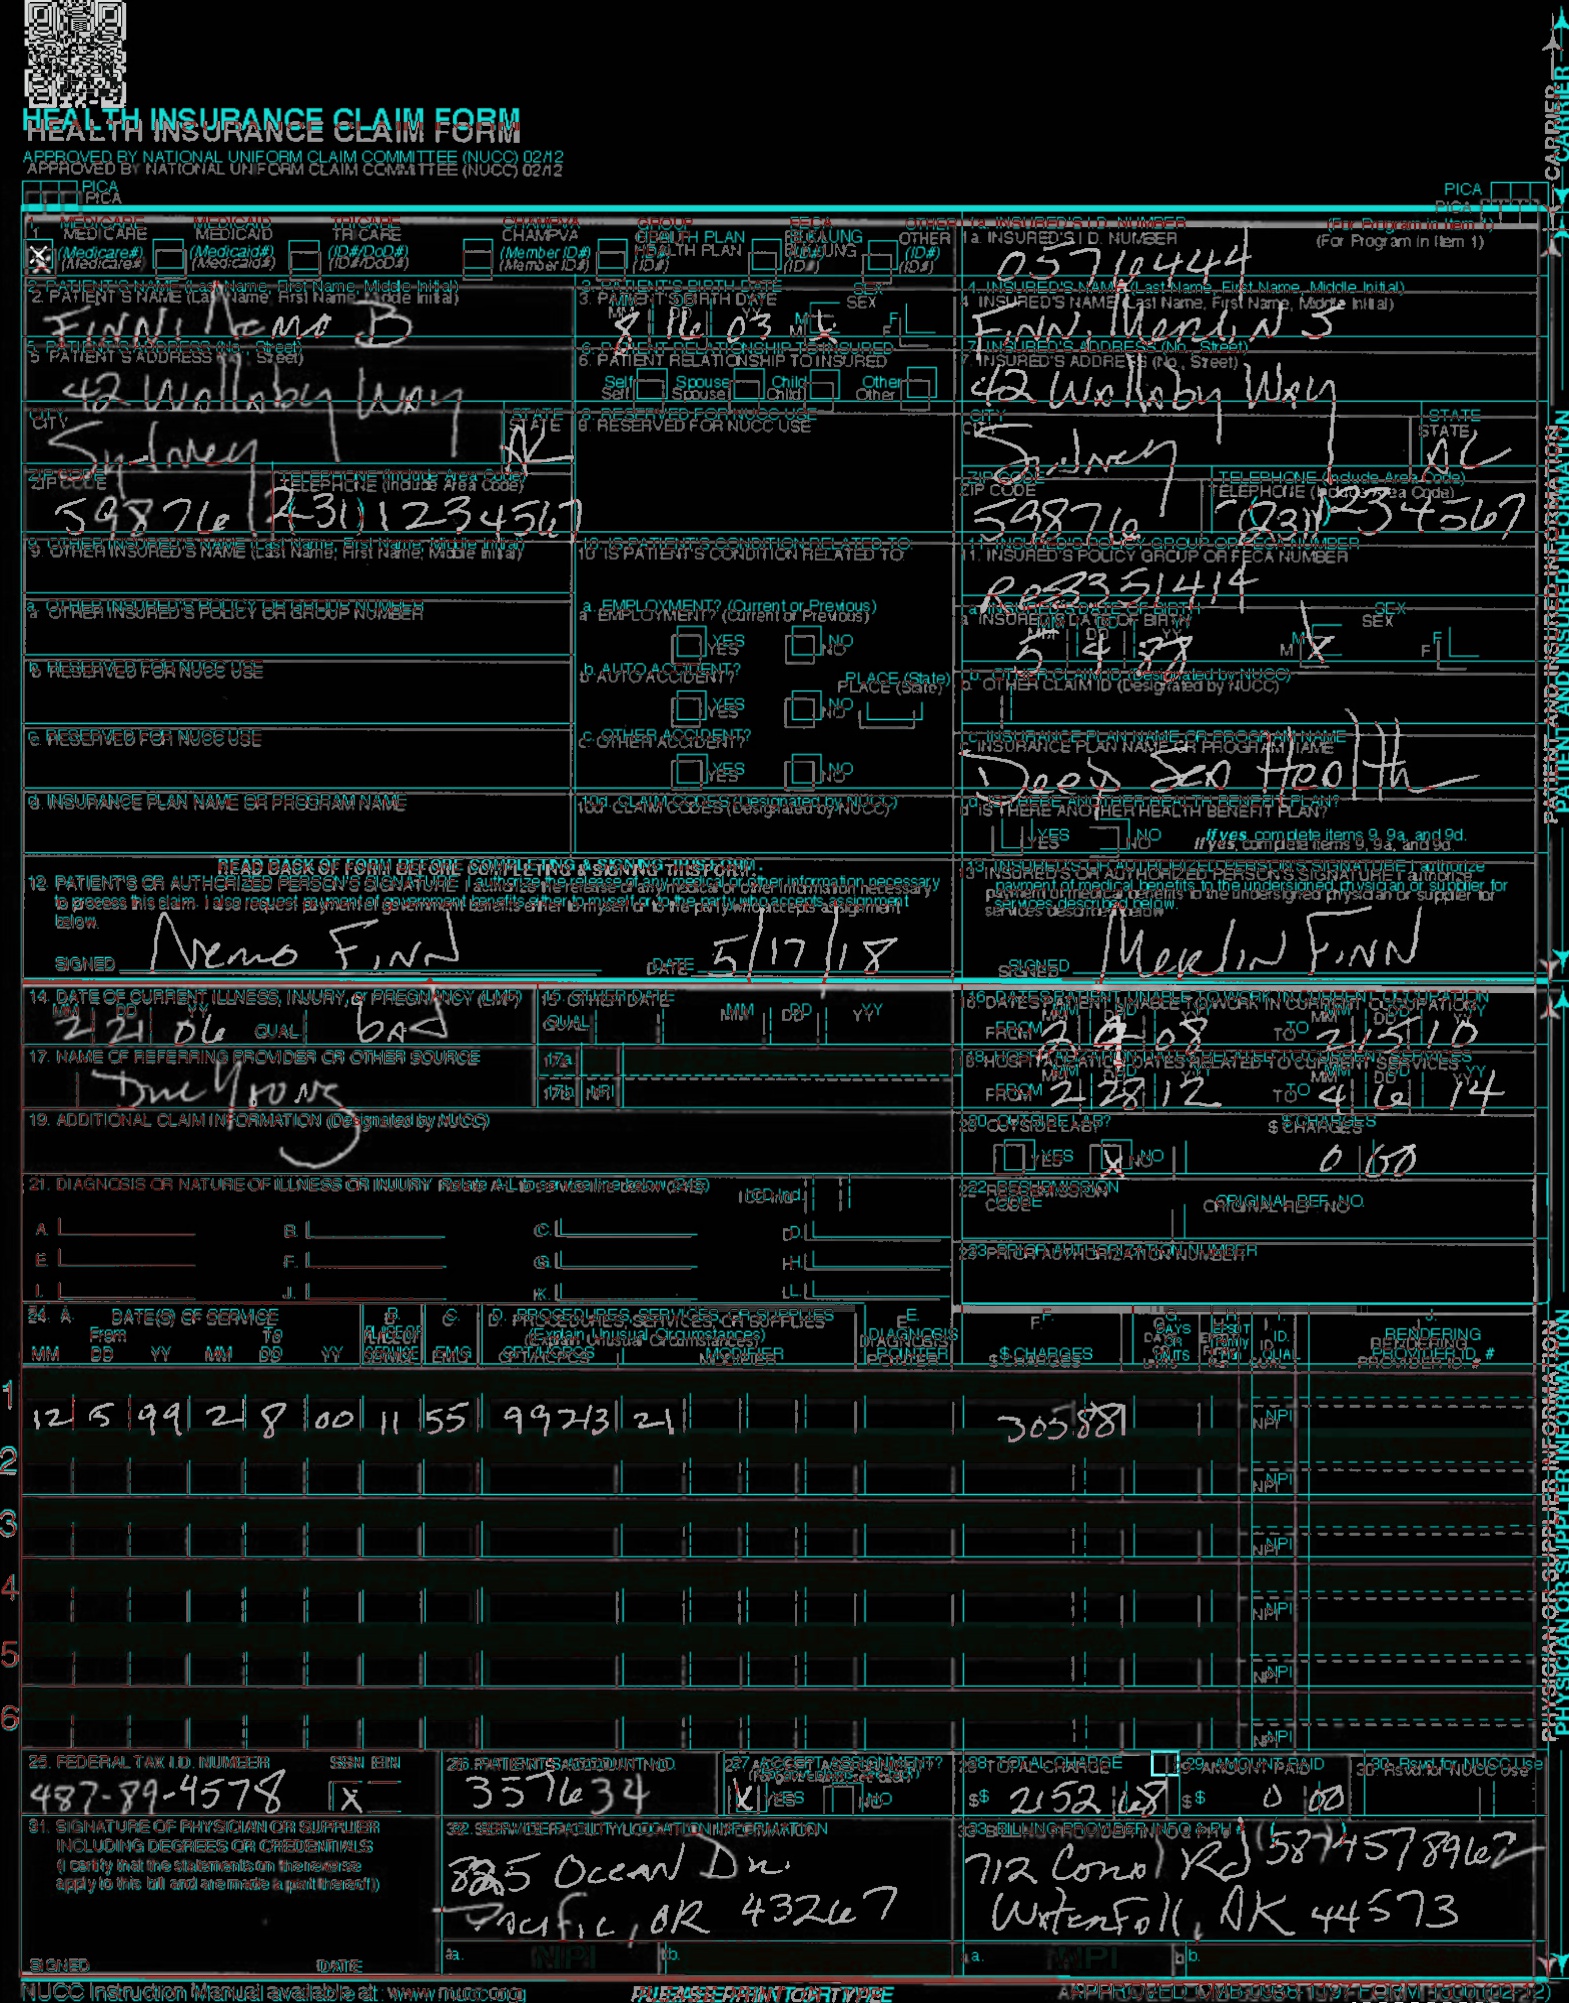 HEALTH INSURANCE CLAIM FORM
APPROVED BY NATIONAL UNIFORM CLAIM COMMITTEE (NUCC) 02/12
PICA PICA
1. MEDICARE MEDICAID TRICARE CHAMPVA GROUP HEALTH PLAN FECA BLKLUNG OTHER
(Medicare#) (Medicaid#) (ID#/DoD#) (Member ID#) (ID#) (ID#) (ID#)
X
1a. INSURED'S I.D. NUMBER (For Program in Item 1)
05716444
2. PATIENT'S NAME (Last Name, First Name, Middle Initial)
FINN, Nemo B
3. PATIENT'S BIRTH DATE SEX
MM DD YY
8 16 03 M X F
4. INSURED'S NAME (Last Name, First Name, Middle Initial)
FINN, Merlin J
5. PATIENT'S ADDRESS (No., Street)
42 Wallaby Way
6. PATIENT RELATIONSHIP TO INSURED
Self Spouse Child Other
7. INSURED'S ADDRESS (No., Street)
42 Wallaby Way
CITY STATE
Sydney AK
8. RESERVED FOR NUCC USE
CITY STATE
Sydney
ZIP CODE TELEPHONE (Include Area Code)
59876 (231) 1234567
ZIP CODE TELEPHONE (Include Area Code)
59876 (231) 1234567
9. OTHER INSURED'S NAME (Last Name, First Name, Middle Initial)
10. IS PATIENT'S CONDITION RELATED TO:
11. INSURED'S POLICY GROUP OR FECA NUMBER
a. OTHER INSURED'S POLICY OR GROUP NUMBER
a. EMPLOYMENT? (Current or Previous)
YES NO
a. INSURED'S DATE OF BIRTH SEX
MM DD YY
5 4 88 M X F
b. RESERVED FOR NUCC USE
b. AUTO ACCIDENT? PLACE (State)
YES NO
b. OTHER CLAIM ID (Designated by NUCC)
c. RESERVED FOR NUCC USE
c. OTHER ACCIDENT?
YES NO
c. INSURANCE PLAN NAME OR PROGRAM NAME
Deep Sea Health
d. INSURANCE PLAN NAME OR PROGRAM NAME
10d. CLAIM CODES (Designated by NUCC)
d. IS THERE ANOTHER HEALTH BENEFIT PLAN?
YES NO If yes, complete items 9, 9a, and 9d.
READ BACK OF FORM BEFORE COMPLETING & SIGNING THIS FORM.
12. PATIENT'S OR AUTHORIZED PERSON'S SIGNATURE I authorize the release of any medical or other information necessary
to process this claim. I also request payment of government benefits either to myself or to the party who accepts assignment
below.
SIGNED Nemo FINN DATE 5/17/18
13. INSURED'S OR AUTHORIZED PERSON'S SIGNATURE I authorize
payment of medical benefits to the undersigned physician or supplier for
services described below.
SIGNED Merlin FINN
14. DATE OF CURRENT ILLNESS, INJURY, or PREGNANCY (LMP)
MM DD YY
2 21 06 QUAL. bad
15. OTHER DATE
QUAL. MM DD YY
16. DATES PATIENT UNABLE TO WORK IN CURRENT OCCUPATION
MM DD YY MM DD YY
FROM 2 08 TO 2 15 10
17. NAME OF REFERRING PROVIDER OR OTHER SOURCE
17a.
17b. NPI
18. HOSPITALIZATION DATES RELATED TO CURRENT SERVICES
MM DD YY MM DD YY
FROM 2 28 12 TO 4 6 14
19. ADDITIONAL CLAIM INFORMATION (Designated by NUCC)
20. OUTSIDE LAB? $ CHARGES
YES X NO 0 00
21. DIAGNOSIS OR NATURE OF ILLNESS OR INJURY Relate A-L to service line below (24E) ICD Ind.
A. B. C. D.
E. F. G. H.
I. J. K. L.
22. RESUBMISSION CODE ORIGINAL REF. NO.
23. PRIOR AUTHORIZATION NUMBER
24. A. DATE(S) OF SERVICE B. C. D. PROCEDURES, SERVICES, OR SUPPLIES E. F. G. H. I. J.
From To PLACE OF (Explain Unusual Circumstances) DIAGNOSIS ID. RENDERING
MM DD YY MM DD YY SERVICE EMG CPT/HCPCS MODIFIER POINTER $ CHARGES QUAL. PROVIDER ID. #
1 12 5 99 2 8 00 11 55 99213 21 305 88 NPI
2 NPI
3 NPI
4 NPI
5 NPI
6 NPI
25. FEDERAL TAX I.D. NUMBER SSN EIN
487-89-4578 X
26. PATIENT'S ACCOUNT NO.
357634
27. ACCEPT ASSIGNMENT?
X YES NO
28. TOTAL CHARGE
$ 2152 68
29. AMOUNT PAID
$ 0 00
30. Rsvd for NUCC Use
31. SIGNATURE OF PHYSICIAN OR SUPPLIER
INCLUDING DEGREES OR CREDENTIALS
(I certify that the statements on the reverse
apply to this bill and are made a part thereof.)
SIGNED DATE
32. SERVICE FACILITY LOCATION INFORMATION
825 Ocean Dr.
Pacific, OR 43267
a. NPI b.
33. BILLING PROVIDER INFO & PH #
712 Coral Rd (587) 4578962
Waterfall, AK 44573
a. NPI b.
NUCC Instruction Manual available at: www.nucc.org
PLEASE PRINT OR TYPE
CARRIER
PATIENT AND INSURED INFORMATION
PHYSICIAN OR SUPPLIER INFORMATION